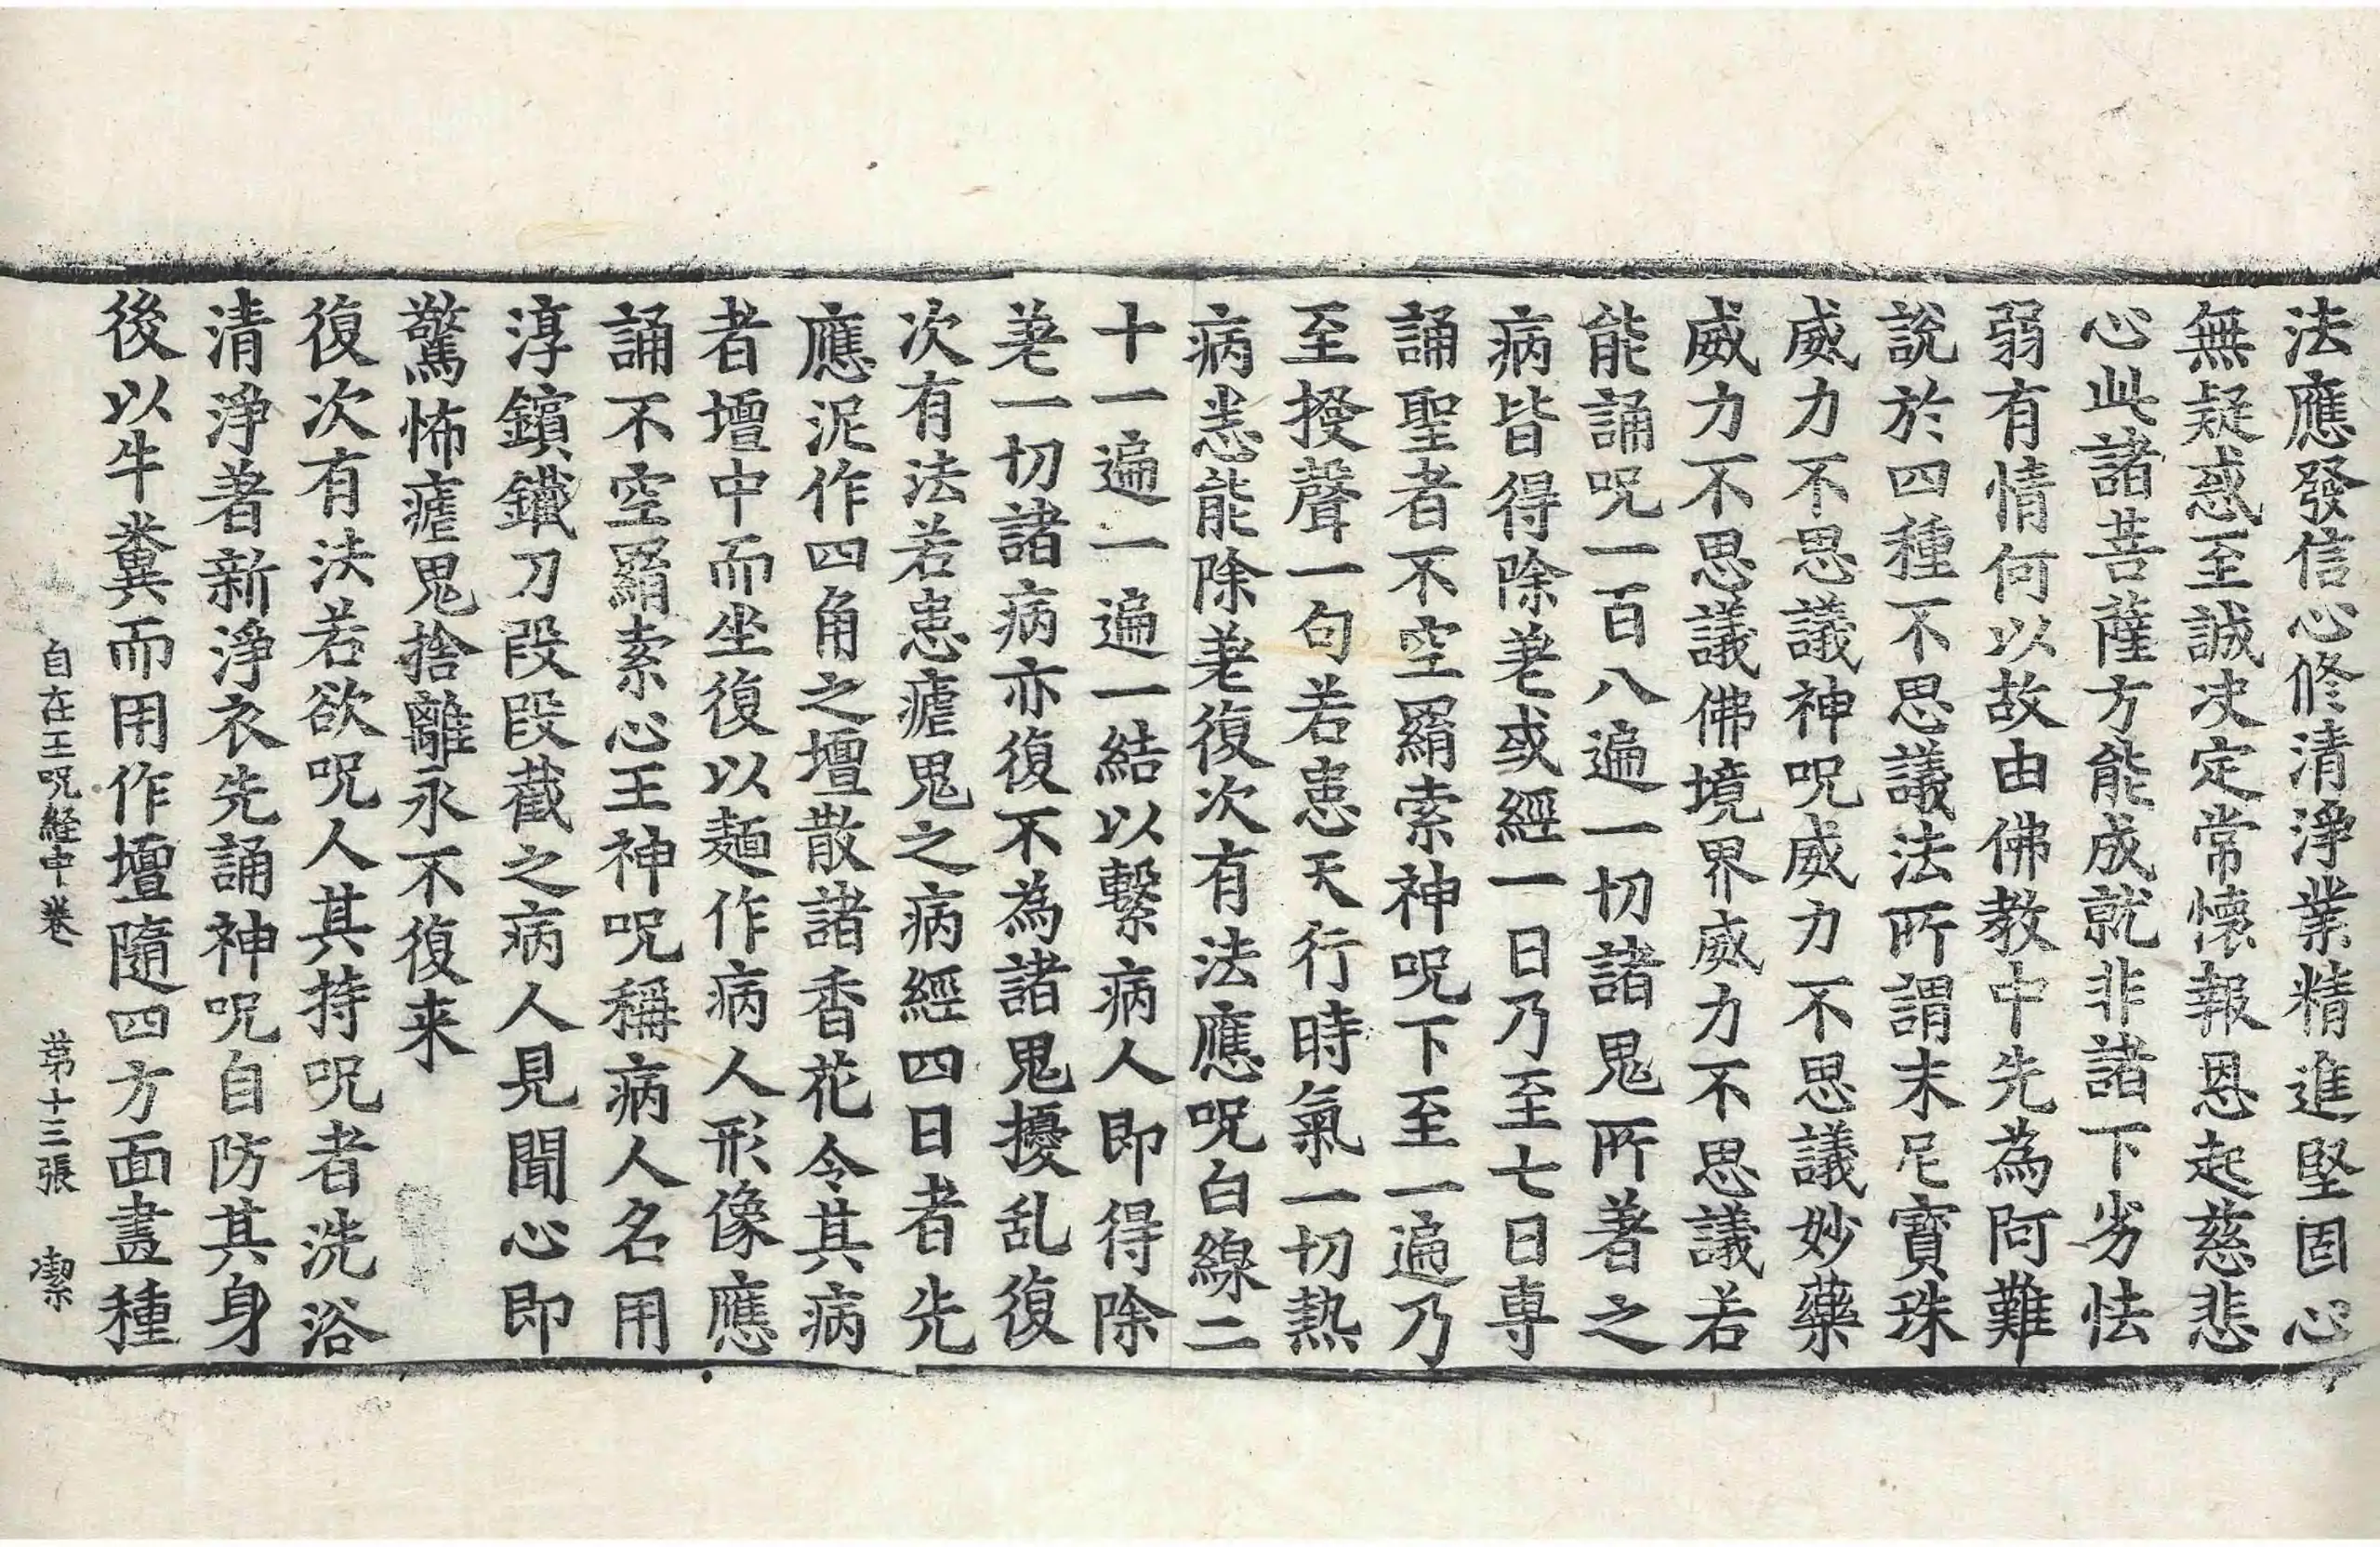 法應發信心修清淨業精進堅固心
無疑惑至誠决定常懷報恩起慈悲
心此諸菩薩方能成就非諸下劣怯
弱有情何以故由佛教中先為阿難
說於四種不思議法所謂末尼寶珠
威力不思議神呪威力不思議妙藥
威力不思議佛境界威力不思議若
能誦呪一百八遍一切諸鬼所著之
病皆得除差或經一日乃至七日專
誦聖者不空羂索神呪下至一遍乃
至授聲一句若患天行時氣一切熱
病悉能除差復次有法應呪白線二
十一遍一遍一結以繫病人即得除
差一切諸病亦復不為諸鬼擾乱復
次有法若患瘧鬼之病經四日者先
應泥作四角之壇散諸香花令其病
者壇中而坐復以麺作病人形像應
誦不空羂索心王神呪稱病人名用
淳鑌鐵刀段段截之病人見聞心即
驚怖瘧鬼捨離永不復来
復次有法若欲呪人其持呪者洗浴
清淨著新淨衣先誦神呪自防其身
後以牛糞而用作壇隨四方面畫種
自在王呪經中卷 苐十三張 潔